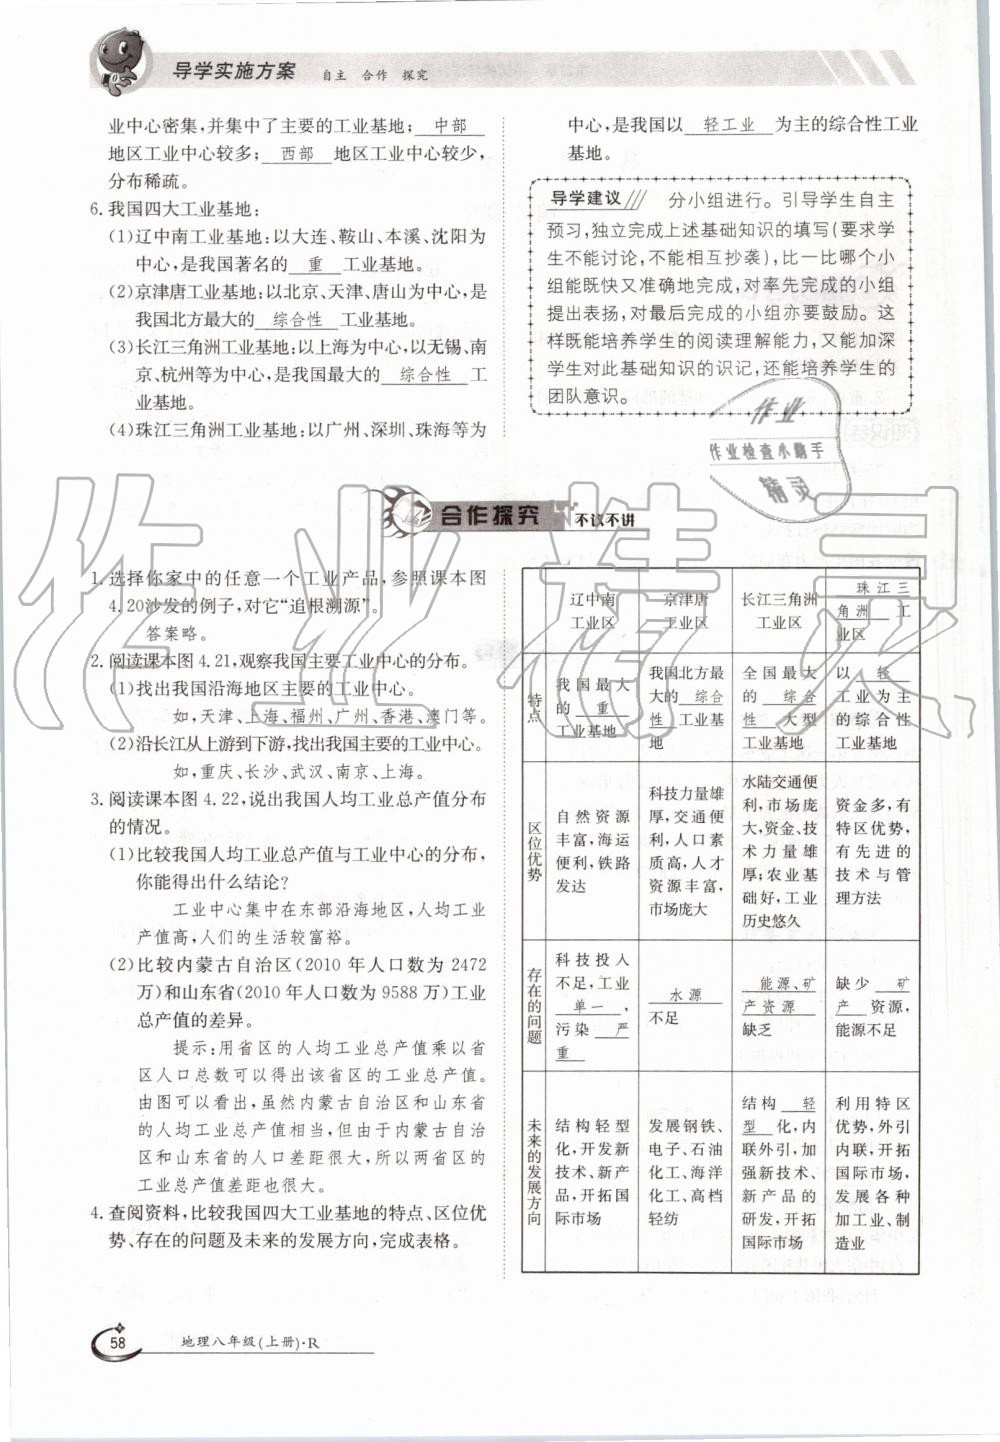 导学实施方案 自主 合作 探究
业中心密集,并集中了主要的工业基地; 中部
地区工业中心较多; 西部 地区工业中心较少,
分布稀疏。
6. 我国四大工业基地:
(1)辽中南工业基地:以大连、鞍山、本溪、沈阳为
中心,是我国著名的 重 工业基地。
(2)京津唐工业基地:以北京、天津、唐山为中心,是
我国北方最大的 综合性 工业基地。
(3)长江三角洲工业基地:以上海为中心,以无锡、南
京、杭州等为中心,是我国最大的 综合性 工
业基地。
(4)珠江三角洲工业基地:以广州、深圳、珠海等为
中心,是我国以 轻工业 为主的综合性工业
基地。
导学建议 分小组进行。引导学生自主
预习,独立完成上述基础知识的填写(要求学
生不能讨论,不能相互抄袭),比一比哪个小
组能既快又准确地完成,对率先完成的小组
提出表扬,对最后完成的小组亦要鼓励。这
样既能培养学生的阅读理解能力,又能加深
学生对此基础知识的识记,还能培养学生的
团队意识。
作业
作业检查小助手
精灵
合作探究 不议不讲
1. 选择你家中的任意一个工业产品,参照课本图
4.20沙发的例子,对它“追根溯源”。
答案略。
2. 阅读课本图4.21,观察我国主要工业中心的分布。
(1)找出我国沿海地区主要的工业中心。
如,天津、上海、福州、广州、香港、澳门等。
(2)沿长江从上游到下游,找出我国主要的工业中心。
如,重庆、长沙、武汉、南京、上海。
3. 阅读课本图4.22,说出我国人均工业总产值分布
的情况。
(1)比较我国人均工业总产值与工业中心的分布,
你能得出什么结论?
工业中心集中在东部沿海地区,人均工业
产值高,人们的生活较富裕。
(2)比较内蒙古自治区(2010年人口数为2472
万)和山东省(2010年人口数为9588万)工业
总产值的差异。
提示:用省区的人均工业总产值乘以省
区人口总数可以得出该省区的工业总产值。
由图可以看出,虽然内蒙古自治区和山东省
的人均工业总产值相当,但由于内蒙古自治
区和山东省的人口差距很大,所以两省区的
工业总产值差距也很大。
4. 查阅资料,比较我国四大工业基地的特点、区位优
势、存在的问题及未来的发展方向,完成表格。
辽中南
工业区
京津唐
工业区
长江三角洲
工业区
珠江三
角洲 工
业区
特点
我国最大
的 重
工业基地
我国北方最
大的 综合
性 工业基
地
全国最大
的 综合
性 大型
工业基地
以 轻
工业为主
的综合性
工业基地
区位优势
自然资源
丰富,海运
便利,铁路
发达
科技力量雄
厚,交通便
利,人口素
质高,人才
资源丰富,
市场庞大
水陆交通便
利,市场庞
大,资金、技
术力量雄
厚;农业基
础好,工业
历史悠久
资金多,有
特区优势,
有先进的
技术与管
理方法
存在的问题
科技投入
不足,工业
单一 ,
污染 严
重
水源
不足
能源、矿
产资源
缺乏
缺少 矿
产 资源,
能源不足
未来的发展方向
结构轻型
化,开发新
技术、新产
品,开拓国
际市场
发展钢铁、
电子、石油
化工、海洋
化工、高档
轻纺
结构 轻
型 化,内
联外引,加
强新技术、
新产品的
研发,开拓
国际市场
利用特区
优势,外引
内联,开拓
国际市场,
发展各种
加工业、制
造业
作业精灵
58 地理八年级(上册)·R